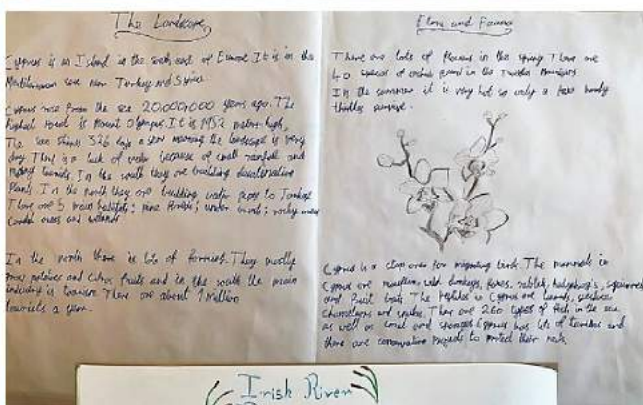 The Landscape
Cyprus is an Island in the south east of Europe. It is in the
Mediterranean sea near Turkey and Syria.
Cyprus rose from the sea 20,000,000 years ago. The
highest is Mount Olympus. It is 1952 meters high.
The sun shines 326 days a year meaning the landscape is very
dry. There is a lack of water because of small rainfall and
many tourists. In the south they are building
Plants. In the north they are building water pipes to
There are 5 main habitats; pine forests;
coastal areas and wetlands
In the north there is lots of farmers. They mostly
grow potatoes and citrus fruits and in the south the main
industry is tourism. There are about 1 million
tourists a year.
Flora and Fauna
There are lots of flowers in the spring There are
40 species of orchid in the
In the summer it is very hot so only a few hardy
thistles survive.
Cyprus is a stop over for migrating birds. The mammals in
Cyprus are wild donkeys, foxes,
and fruit bats. The in Cyprus are
and snakes. There are 260 types of fish in the sea
as well as coral and sponges. Cyprus has lots of and
there are conservation projects to protect their nests.
Irish River